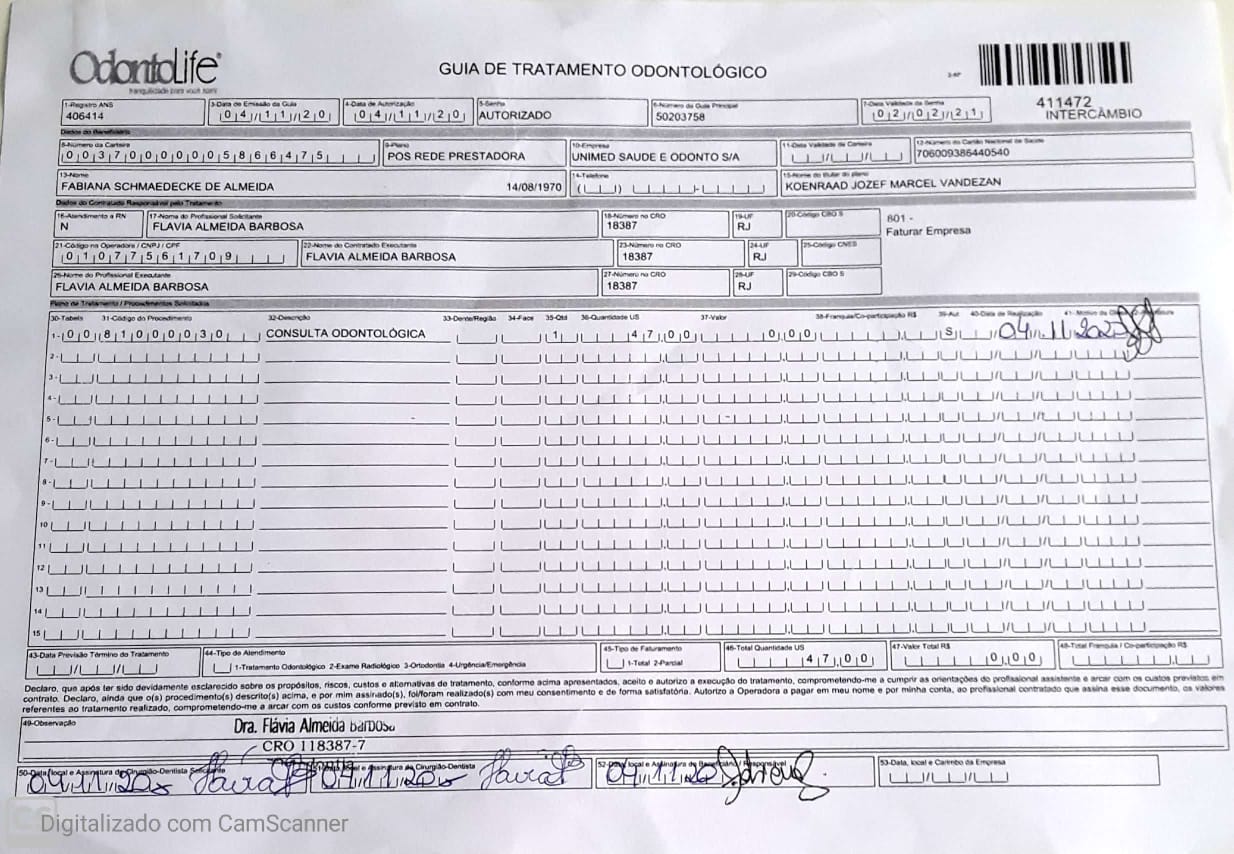 OdontoLife
tranquilidade para você sorrir
GUIA DE TRATAMENTO ODONTOLÓGICO
411472
INTERCÂMBIO
1-Registro ANS
406414
3-Data de Emissão da Guia
04/11/20
4-Data de Autorização
04/11/20
5-Senha
AUTORIZADO
6-Número da Guia Principal
50203758
7-Data Validade da Senha
02/02/21
Dados do Beneficiário
8-Número da Carteira
00370000005866475
9-Plano
POS REDE PRESTADORA
10-Empresa
UNIMED SAUDE E ODONTO S/A
11-Data Validade da Carteira
12-Número do Cartão Nacional de Saúde
706009386440540
13-Nome
FABIANA SCHMAEDECKE DE ALMEIDA 14/08/1970
14-Telefone
15-Nome do titular do plano
KOENRAAD JOZEF MARCEL VANDEZAN
Dados do Contratado Responsável pelo Tratamento
16-Atendimento a RN
N
17-Nome do Profissional Solicitante
FLAVIA ALMEIDA BARBOSA
18-Número no CRO
18387
19-UF
RJ
20-Código CBO S
801 -
Faturar Empresa
21-Código na Operadora / CNPJ / CPF
01077561709
22-Nome do Contratado Executante
FLAVIA ALMEIDA BARBOSA
23-Número no CRO
18387
24-UF
RJ
25-Código CNES
26-Nome do Profissional Executante
FLAVIA ALMEIDA BARBOSA
27-Número no CRO
18387
28-UF
RJ
29-Código CBO S
Plano de Tratamento / Procedimentos Solicitados
30-Tabela 31-Código do Procedimento 32-Descrição 33-Dente/Região 34-Face 35-Qtd 36-Quantidade US 37-Valor 38-Franquia/Co-participação R$ 39-Aut 40-Data de Realização
1- 00 81000030 CONSULTA ODONTOLÓGICA 1 47,00 0,00 S 04/11/2020
2-
3-
4-
5-
6-
7-
8-
9-
10
11
12
13
14
15
43-Data Previsão Término do Tratamento
44-Tipo de Atendimento
1-Tratamento Odontológico 2-Exame Radiológico 3-Ortodontia 4-Urgência/Emergência
45-Tipo de Faturamento
1-Total 2-Parcial
46-Total Quantidade US
47,00
47-Valor Total R$
0,00
48-Total Franquia / Co-participação R$
Declaro, que após ter sido devidamente esclarecido sobre os propósitos, riscos, custos e alternativas de tratamento, conforme acima apresentados, aceito e autorizo a execução do tratamento, comprometendo-me a cumprir as orientações do profissional assistente e arcar com os custos previstos em
contrato. Declaro, ainda que o(s) procedimento(s) descrito(s) acima, e por mim assinado(s), foi/foram realizado(s) com meu consentimento e de forma satisfatória. Autorizo a Operadora a pagar em meu nome e por minha conta, ao profissional contratado que assina esse documento, os valores
referentes ao tratamento realizado, comprometendo-me a arcar com os custos conforme previsto em contrato.
49-Observação
Dra. Flávia Almeida Barbosa
CRO 118387-7
50-Data, local e Assinatura do Cirurgião-Dentista Solicitante
04/11/20
local e Assinatura do Cirurgião-Dentista
04/11/20
52-Data, local e Assinatura do Beneficiário / Responsável
04/11/20
53-Data, local e Carimbo da Empresa
CS Digitalizado com CamScanner